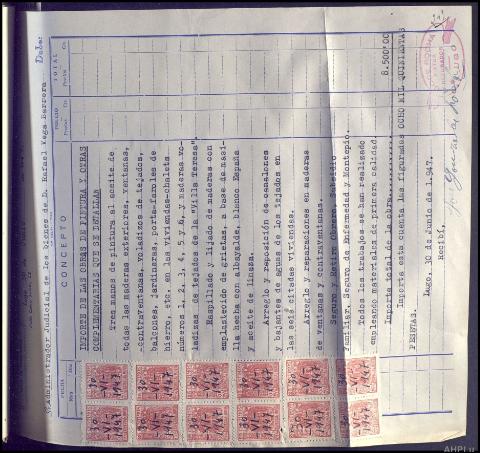 Sr. Administrador Judicial de los bienes de D. Rafael Vega Barrera Debe:
FECHA
CONCEPTO
PARCIAL
TOTAL
Mes
Día
Pesetas
Cs.
Pesetas
Cs.
IMPORTE DE LAS OBRAS DE PINTURA Y OTRAS
COMPLEMENTARIAS QUE SE DETALLAN
Tres manos de pintura al aceite de
todas las maderas exteriores, ventanas,
contraventanas, voladizos de tejados,
balcones, jardineras y porta-faroles de
hierro, etc. de las viviendas-chalets
números 1, 2, 3, 4, 5 y 6, y maderas vo-
ladizas de tejados de la "Villa Teresa".
Raspillado y lijado de maderas con
emplastecido de grietas, a base de masi-
lla hecha con albayalde, blanco España
y aceite de linaza.
Arreglo y reposición de canalones
y bajantes de aguas de los tejados en
las seis citadas viviendas.
Arreglo y reparaciones en maderas
de ventanas y contraventanas.
Seguro y Retiro Obrero, Subsidio
Familiar, Seguro de Enfermedad y Montepío.
Todos los trabajos se han realizado
empleando materiales de primera calidad.
Importa total de la obra
8.500'00
Importa esta cuenta las figuradas OCHO MIL QUINIENTAS
PESETAS.
Lugo, 30 de Junio de 1.947.
Recibí,
30-
VI-
1947
30-
VI-
1947
30-
VI-
1947
30-
VI-
1947
30-
VI-
1947
30-
VI-
1947
30-
VI-
1947
30-
VI-
1947
30-
VI-
1947
30-
VI-
1947
30-
VI-
1947
30-
VI-
1947
AHPLu